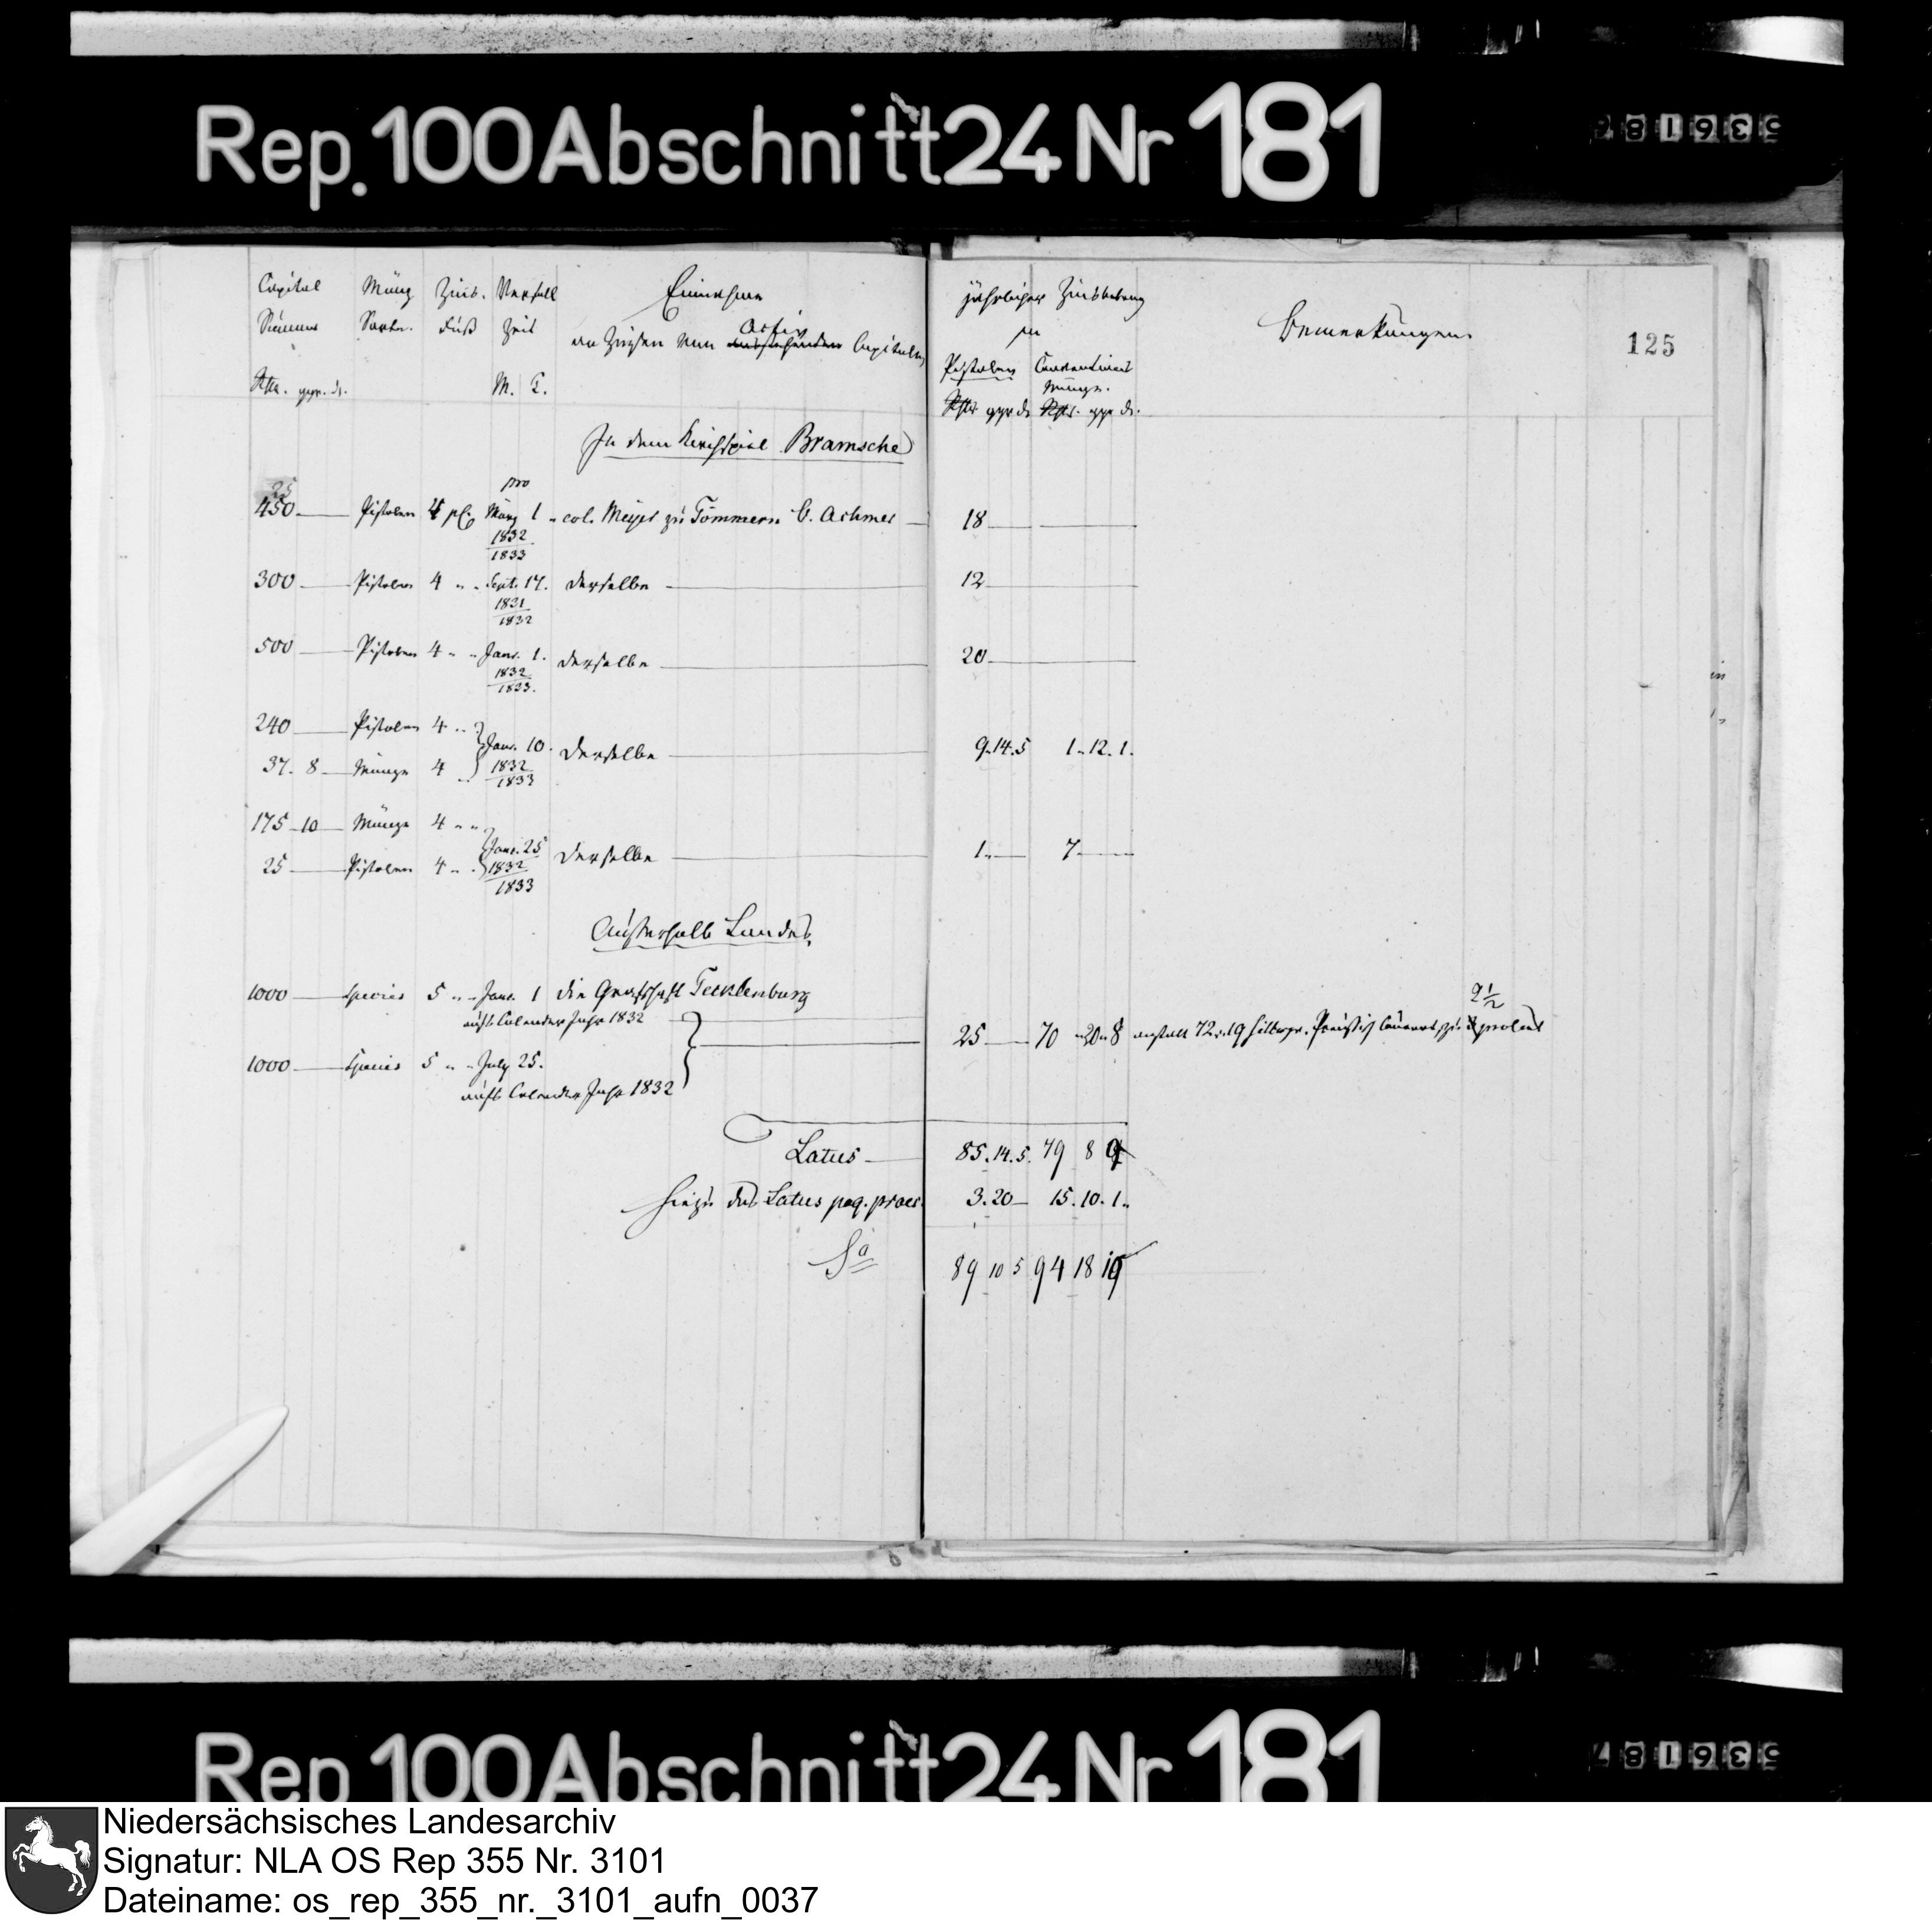 Rep. 100 Abschnitt 24 Nr 181
Capital Münz Zins. Verfall Einnahme
Summe Sorte. Fuß Zeit an Zinsen von ausstehenden Activ Capitalien
Rthr. ggr. d. M. T.
jährlicher Zinsbetrag
in
Pistolen Conventions
Münze.
Rthr ggr d. Rthr. ggr d.
Bemerkungen.
125
In dem Kirchspiel Bramsche
25
pro
450 Pistolen 4 pC. März 1 col. Meyer zu Tömmern B. Achmer 18
1832
1833
300 Pistolen 4 " " Sept. 17. derselbe 12
1831
1832
500 Pistolen 4 " " Janr. 1. derselbe 20
1832
1833.
240 Pistolen 4 "
Janr. 10. derselbe 9.14.5 1.12.1.
37. 8 Münze 4 " 1832
1833
175 10 Münze 4 " "
Janr. 25 derselbe 1 7
25 Pistolen 4 " 1832
1833
Außerhalb Landes.
1000 Species 5 " " Janr. 1 die Grafschaft Tecklenburg
aufs Calender Jahr 1832
25 70 20 8 anstatt 72 19 Preußisch Courant, zu 2½ procent
1000 Species 5 " " July 25.
aufs Calender Jahr 1832
Latus 85.14.5. 79 8 9
hiezu das Latus pag. praec. 3.20 15.10.1.
Sa 89 10 5 94 18 10
Rep 100 Abschnitt 24 Nr 181
Niedersächsisches Landesarchiv
Signatur: NLA OS Rep 355 Nr. 3101
Dateiname: os_rep_355_nr._3101_aufn_0037